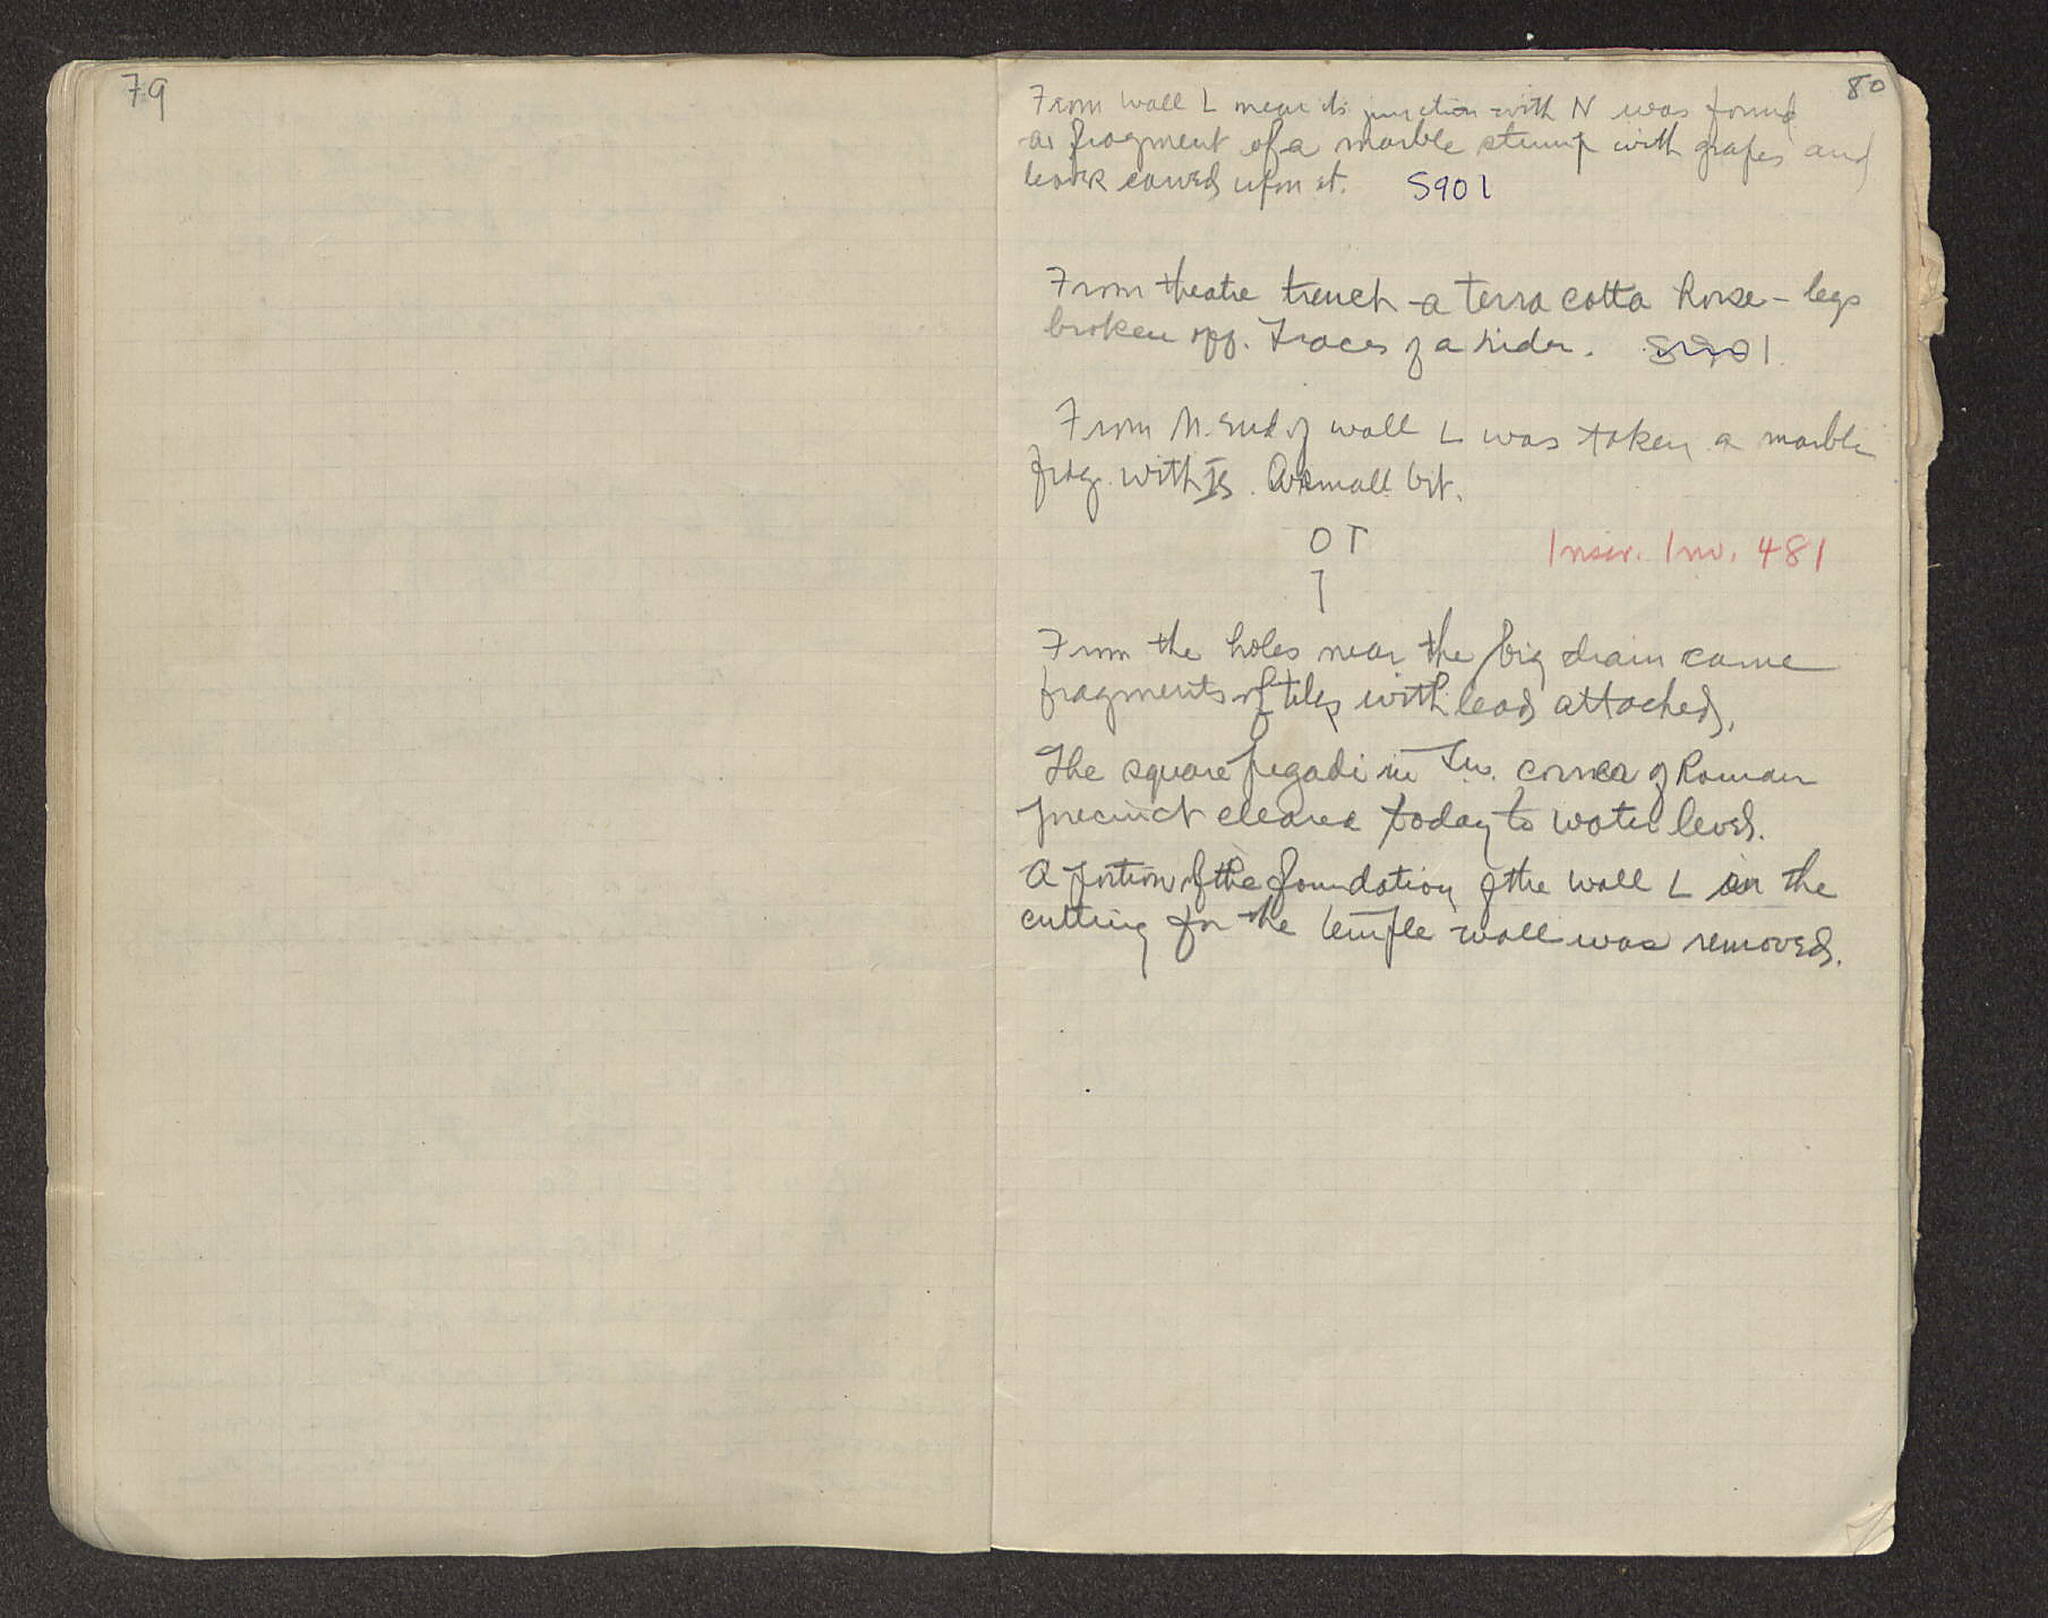 79
80
From wall L near its junction with N was found
a fragment of a marble stump with grapes and
leaves carved upon it. S901
From theatre trench - a terra cotta horse - legs
broken off. Traces of a rider. S901
From N. End of wall L was taken a marble
frag. with Is. A small bit.
O T
Inscr. Inv. 481
From the holes near the big drain came
fragments of tiles with lead attached.
The square pegadi in corner of Roman
precinct cleared today to water level.
A portion of the foundation of the wall L in the
cutting for the temple wall was removed.